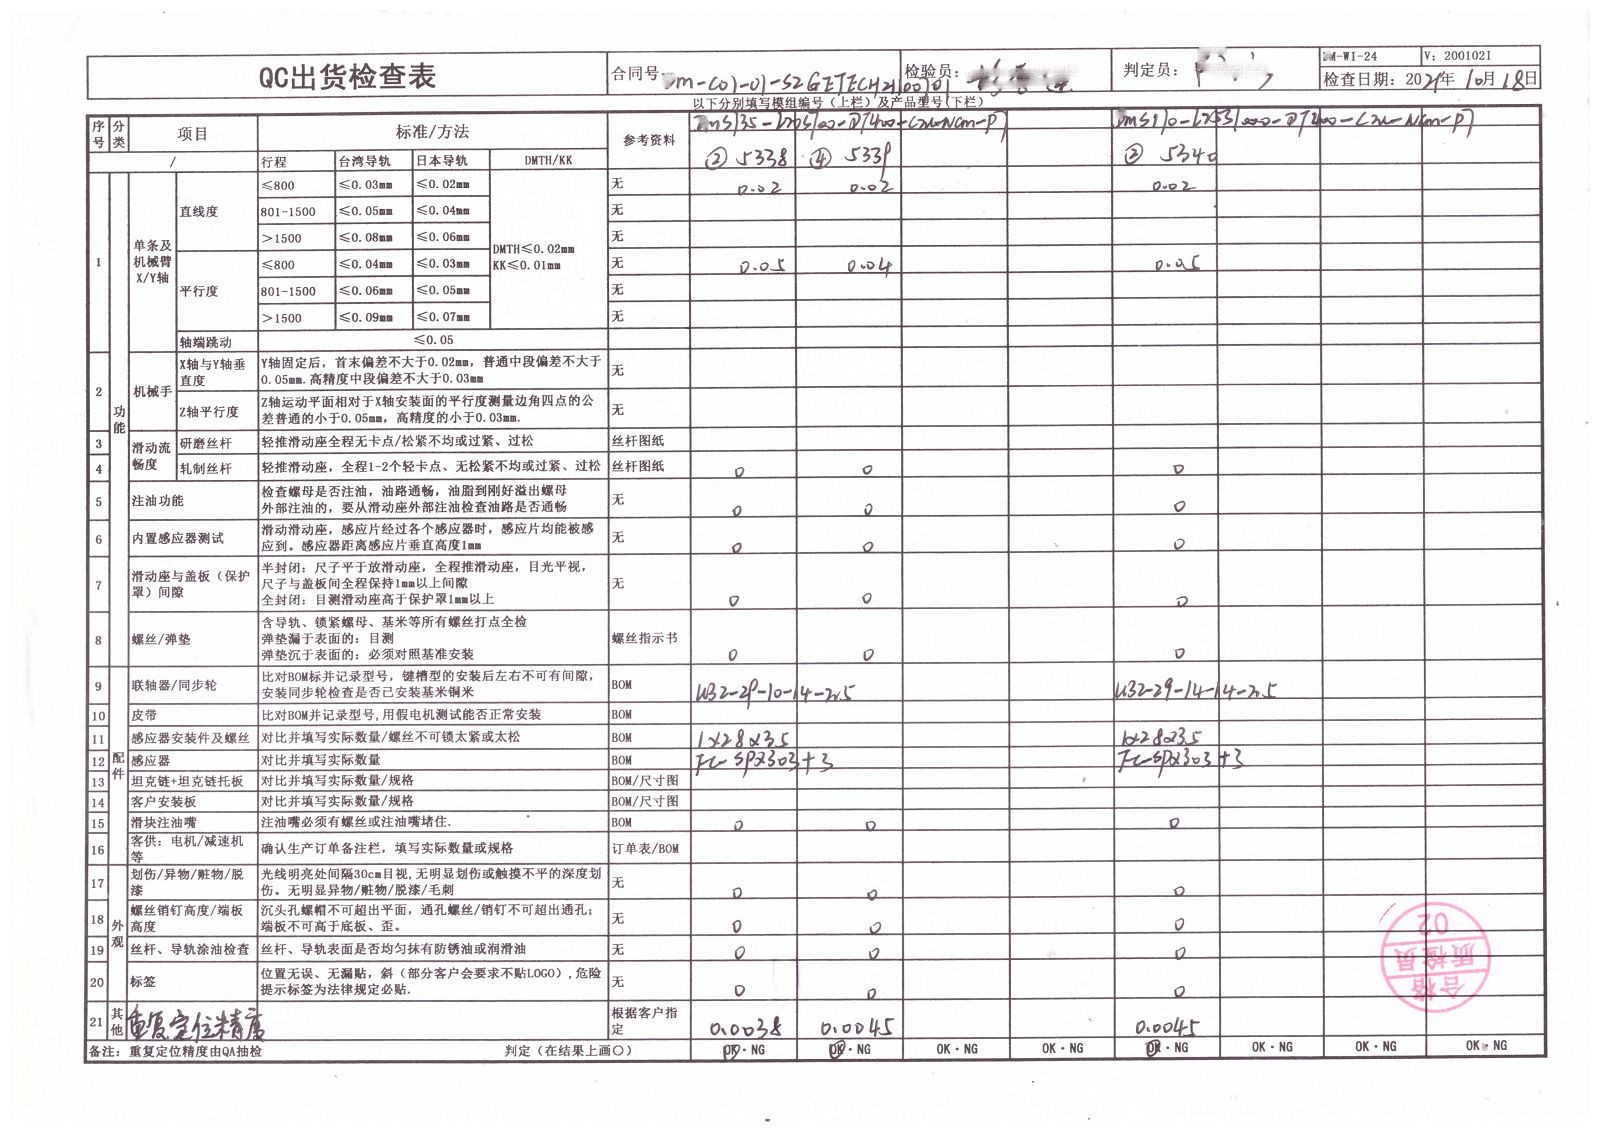 QC出货检查表
合同号
检验员:
判定员:
-WI-24
V: 200102I
检查日期: 2021年10月18日
以下分别填写模组编号(上栏)及产品型号(下栏)
序号 分类 项目 标准/方法 参考资料
/ 行程 台湾导轨 日本导轨 DMTH/KK ② 5338 ④ 5339 ② 5340
1 功能 单条及机械臂X/Y轴 直线度 ≤800 ≤0.03mm ≤0.02mm 无 0.02 0.02 0.02
801-1500 ≤0.05mm ≤0.04mm 无
>1500 ≤0.08mm ≤0.06mm 无
DMTH≤0.02mm
KK≤0.01mm
平行度 ≤800 ≤0.04mm ≤0.03mm 无 0.05 0.04 0.05
801-1500 ≤0.06mm ≤0.05mm 无
>1500 ≤0.09mm ≤0.07mm 无
轴端跳动 ≤0.05
2 机械手 X轴与Y轴垂直度 Y轴固定后, 首末偏差不大于0.02mm, 普通中段偏差不大于
0.05mm.高精度中段偏差不大于0.03mm 无
Z轴平行度 Z轴运动平面相对于X轴安装面的平行度测量边角四点的公
差普通的小于0.05mm, 高精度的小于0.03mm. 无
3 滑动流畅度 研磨丝杆 轻推滑动座全程无卡点/松紧不均或过紧、过松 丝杆图纸
4 轧制丝杆 轻推滑动座, 全程1-2个轻卡点、无松紧不均或过紧、过松 丝杆图纸 0 0 0
5 注油功能 检查螺母是否注油, 油路通畅, 油脂到刚好溢出螺母
外部注油的, 要从滑动座外部注油检查油路是否通畅 无 0 0 0
6 内置感应器测试 滑动滑动座, 感应片经过各个感应器时, 感应片均能被感
应到。感应器距离感应片垂直高度1mm 无 0 0 0
7 滑动座与盖板(保护罩)间隙 半封闭: 尺子平于放滑动座, 全程推滑动座, 目光平视,
尺子与盖板间全程保持1mm以上间隙
全封闭: 目测滑动座高于保护罩1mm以上 无 0 0 0
8 螺丝/弹垫 含导轨、锁紧螺母、基米等所有螺丝打点全检
弹垫漏于表面的: 目测
弹垫沉于表面的: 必须对照基准安装 螺丝指示书 0 0 0
9 配件 联轴器/同步轮 比对BOM标并记录型号, 键槽型的安装后左右不可有间隙,
安装同步轮检查是否已安装基米铜米 BOM
10 皮带 比对BOM并记录型号,用假电机测试能否正常安装 BOM
11 感应器安装件及螺丝 对比并填写实际数量/螺丝不可锁太紧或太松 BOM 1×28×35 1×28×35
12 感应器 对比并填写实际数量 BOM
13 坦克链+坦克链托板 对比并填写实际数量/规格 BOM/尺寸图
14 客户安装板 对比并填写实际数量/规格 BOM/尺寸图
15 滑块注油嘴 注油嘴必须有螺丝或注油嘴堵住. BOM 0 0 0
16 客供: 电机/减速机等 确认生产订单备注栏, 填写实际数量或规格 订单表/BOM
17 外观 划伤/异物/赃物/脱漆 光线明亮处间隔30cm目视,无明显划伤或触摸不平的深度划
伤。无明显异物/赃物/脱漆/毛刺 无 0 0 0
18 螺丝销钉高度/端板高度 沉头孔螺帽不可超出平面, 通孔螺丝/销钉不可超出通孔;
端板不可高于底板、歪。 无 0 0 0
19 丝杆、导轨涂油检查 丝杆、导轨表面是否均匀抹有防锈油或润滑油 无 0 0 0
20 标签 位置无误、无漏贴, 斜(部分客户会要求不贴LOGO),危险
提示标签为法律规定必贴. 无 0 0 0
21 其他 重复定位精度 根据客户指定 0.0038 0.0045 0.0045
备注: 重复定位精度由QA抽检 判定(在结果上画〇) OK·NG OK·NG OK·NG OK·NG OK·NG OK·NG OK·NG OK·NG
合格
质检员
02